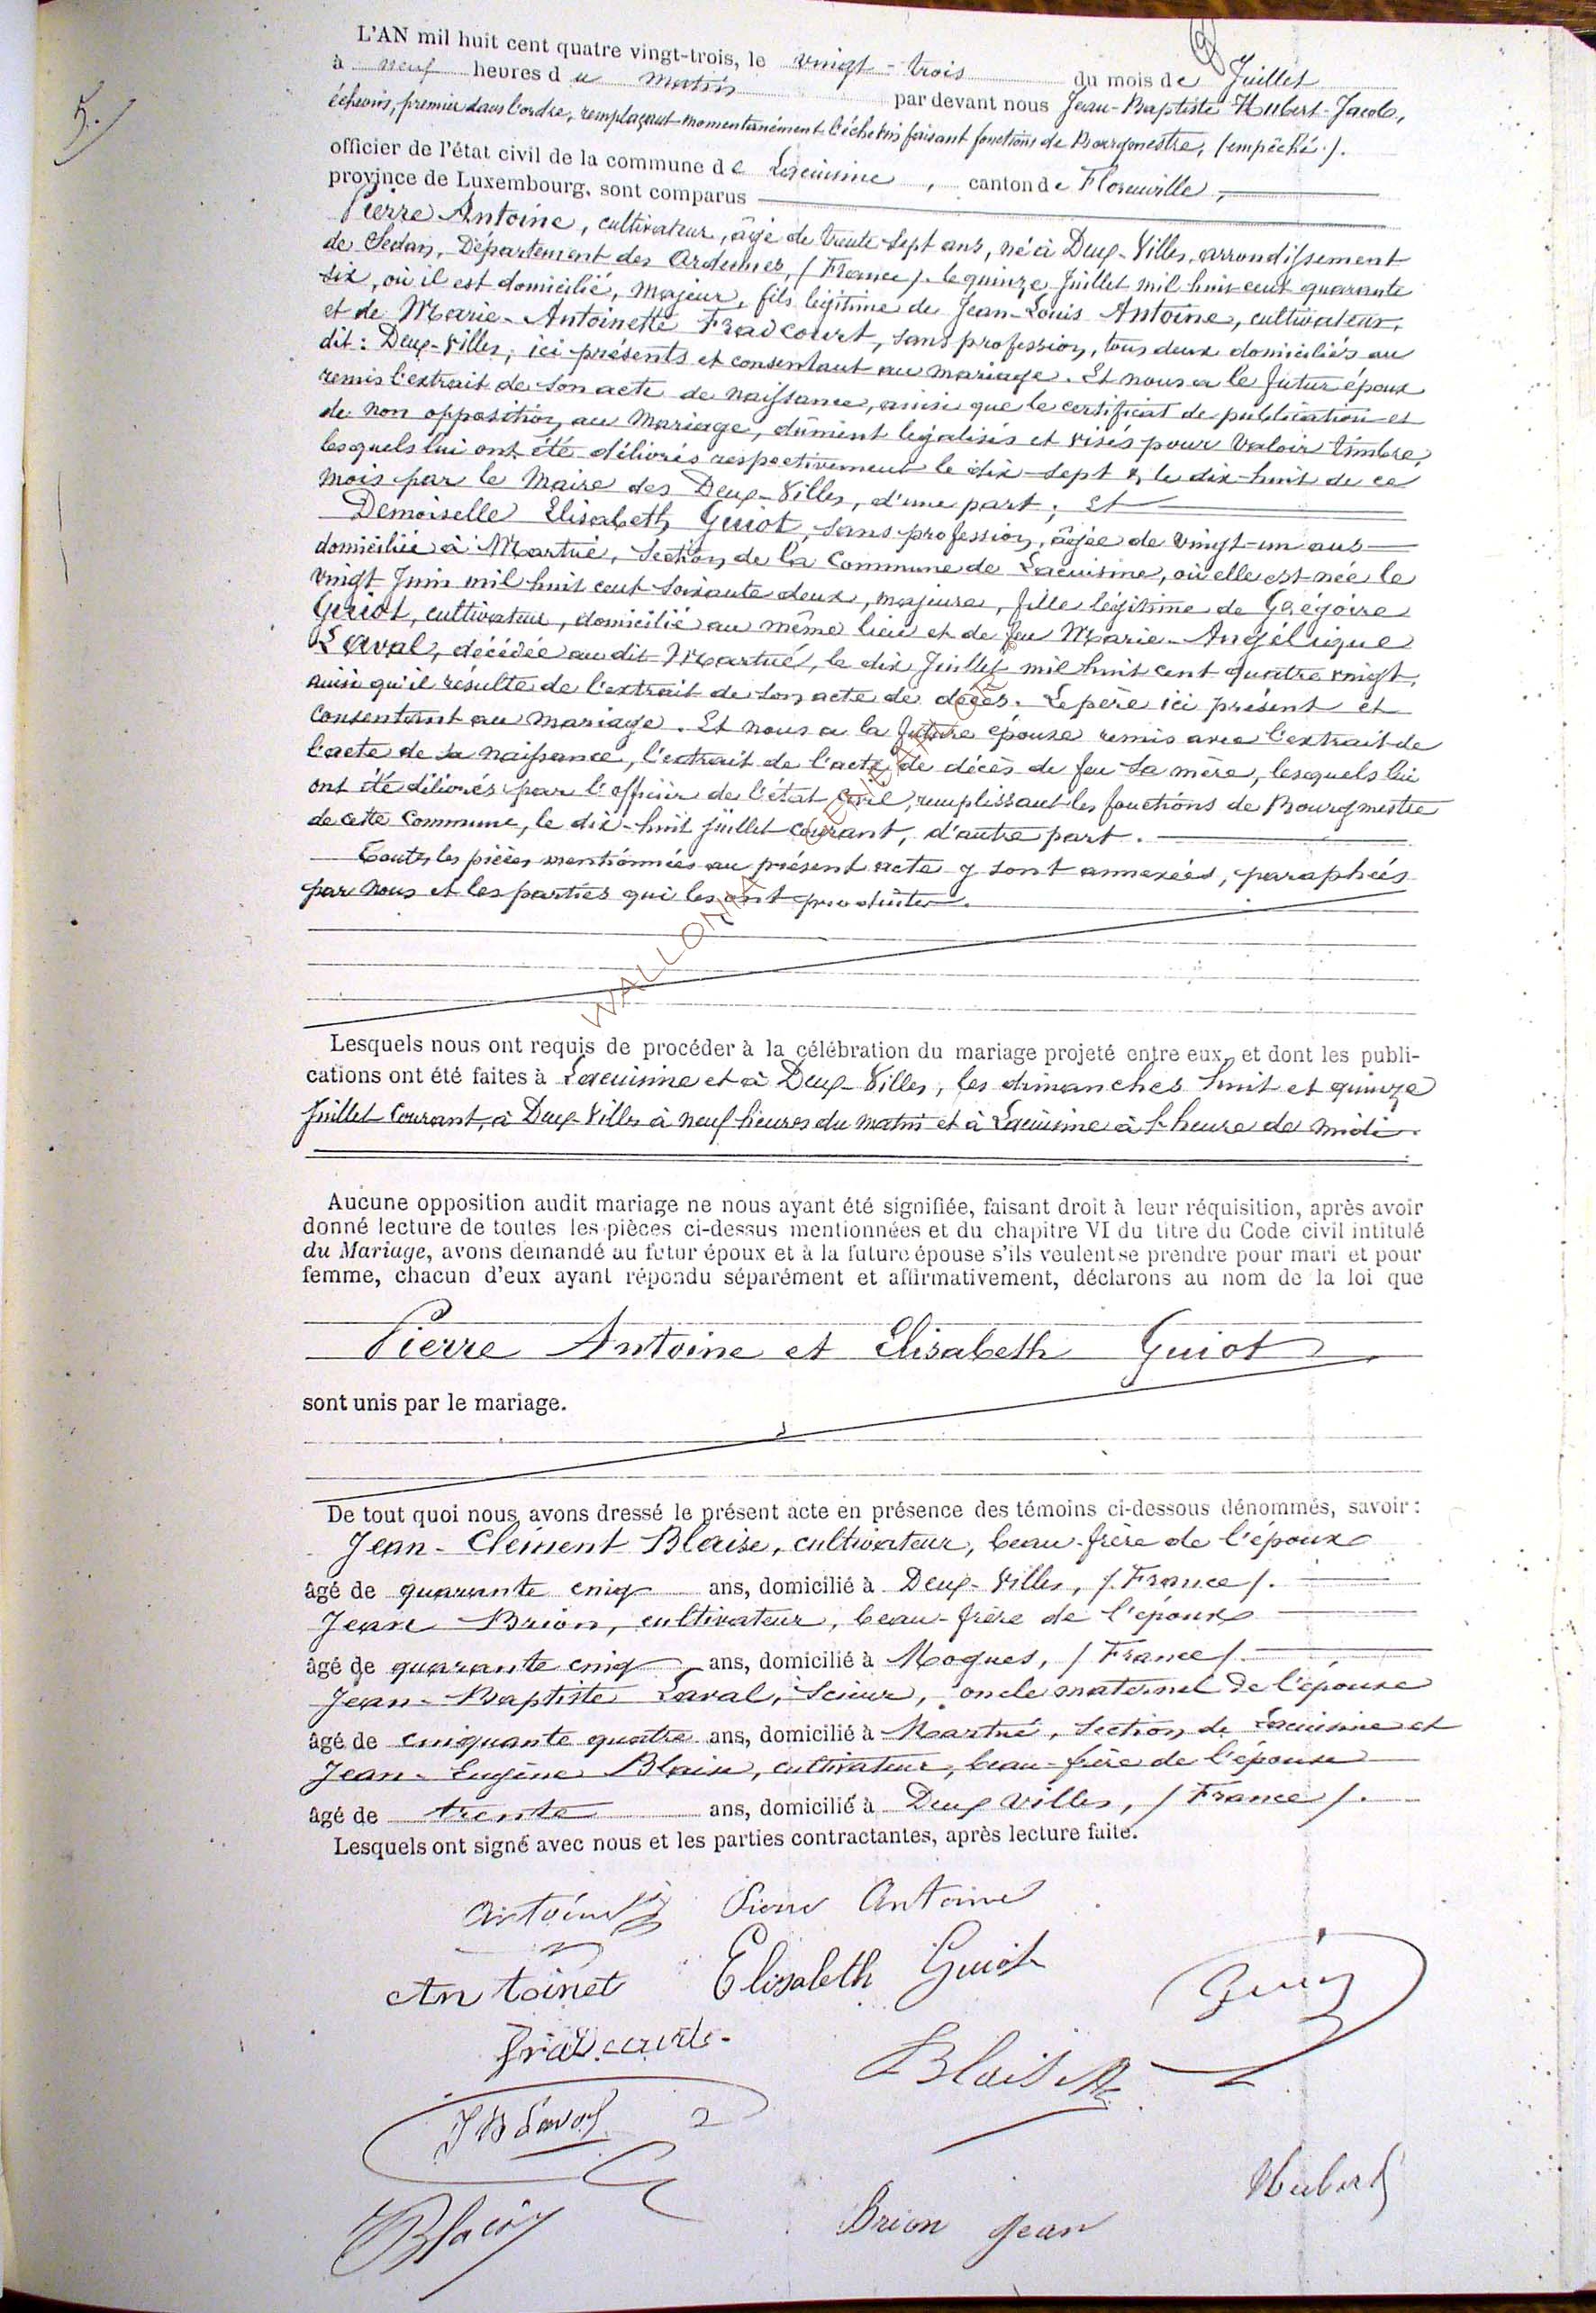 5.
L'AN mil huit cent quatre vingt-trois, le vingt-trois du mois de Juillet
à neuf heures du matin par devant nous Jean-Baptiste Hubert-Jacob,
échevin, premier dans l'ordre, remplaçant momentanément l'échevin faisant fonctions de Bourgmestre, (empêché).
officier de l'état civil de la commune de Lacuisine, canton de Florenville,
province de Luxembourg, sont comparus
Pierre Antoine, cultivateur, âgé de trente sept ans, né à Deux-Villes, arrondissement
de Sedan, Département des Ardennes, (France). le quinze Juillet mil huit cent quarante
six, où il est domicilié, majeur, fils légitime de Jean-Louis Antoine, cultivateur,
et de Marie-Antoinette Fradcourt, sans profession, tous deux domiciliés au
dit: Deux-Villes; ici présents et consentant au mariage. Et nous a le futur époux
remis l'extrait de son acte de naissance, ainsi que le certificat de publication et
de non opposition au mariage, dûment légalisés et visés pour valoir timbre,
lesquels lui ont été délivrés respectivement le dix-sept & le dix-huit de ce
mois par le Maire des Deux-Villes, d'une part; Et
Demoiselle Elisabeth Guiot, sans profession, âgée de vingt-un ans
domiciliée à Martué, Section de la Commune de Lacuisine, où elle est née le
vingt Juin mil huit cent soixante deux, majeure, fille légitime de Grégoire
Guiot, cultivateur, domicilié au même lieu et de feu Marie-Angélique
Laval, décédée au dit Martué, le dix Juillet mil huit cent quatre vingt,
ainsi qu'il résulte de l'extrait de son acte de décès. Le père ici présent et
consentant au mariage. Et nous a la future épouse remis avec l'extrait de
l'acte de sa naissance, l'extrait de l'acte de décès de feu sa mère, lesquels lui
ont été délivrés par l'officier de l'état civil, remplissant les fonctions de Bourgmestre
de cette Commune, le dix-huit juillet courant, d'autre part.
Toutes les pièces mentionnées au présent acte y sont annexées, paraphées
par nous et les parties qui les ont produites.
WALLONIA
Lesquels nous ont requis de procéder à la célébration du mariage projeté entre eux, et dont les publi-
cations ont été faites à Lacuisine et à Deux-Villes, les dimanches huit et quinze
Juillet courant, à Deux-Villes à neuf heures du matin et à Lacuisine à l'heure de midi.
Aucune opposition audit mariage ne nous ayant été signifiée, faisant droit à leur réquisition, après avoir
donné lecture de toutes les pièces ci-dessus mentionnées et du chapitre VI du titre du Code civil intitulé
du Mariage, avons demandé au futur époux et à la future épouse s'ils veulent se prendre pour mari et pour
femme, chacun d'eux ayant répondu séparément et affirmativement, déclarons au nom de la loi que
Pierre Antoine et Elisabeth Guiot
sont unis par le mariage.
De tout quoi nous avons dressé le présent acte en présence des témoins ci-dessous dénommés, savoir:
Jean-Clément Blaise, cultivateur, beau-frère de l'époux
âgé de quarante cinq ans, domicilié à Deux-Villes, (France).
Jean Brion, cultivateur, beau-frère de l'époux
âgé de quarante cinq ans, domicilié à Mogues, (France).
Jean-Baptiste Laval, scieur, oncle maternel de l'épouse
âgé de cinquante quatre ans, domicilié à Martué, Section de Lacuisine et
Jean-Eugène Blaise, cultivateur, beau-frère de l'épouse
âgé de trente ans, domicilié à Deux Villes, (France).
Lesquels ont signé avec nous et les parties contractantes, après lecture faite.
Antoine Pierre Antoine
Antoinet Elisabeth Guiot
Fradcourt
Blaise
J B Laval
Hubert
Brion Jean